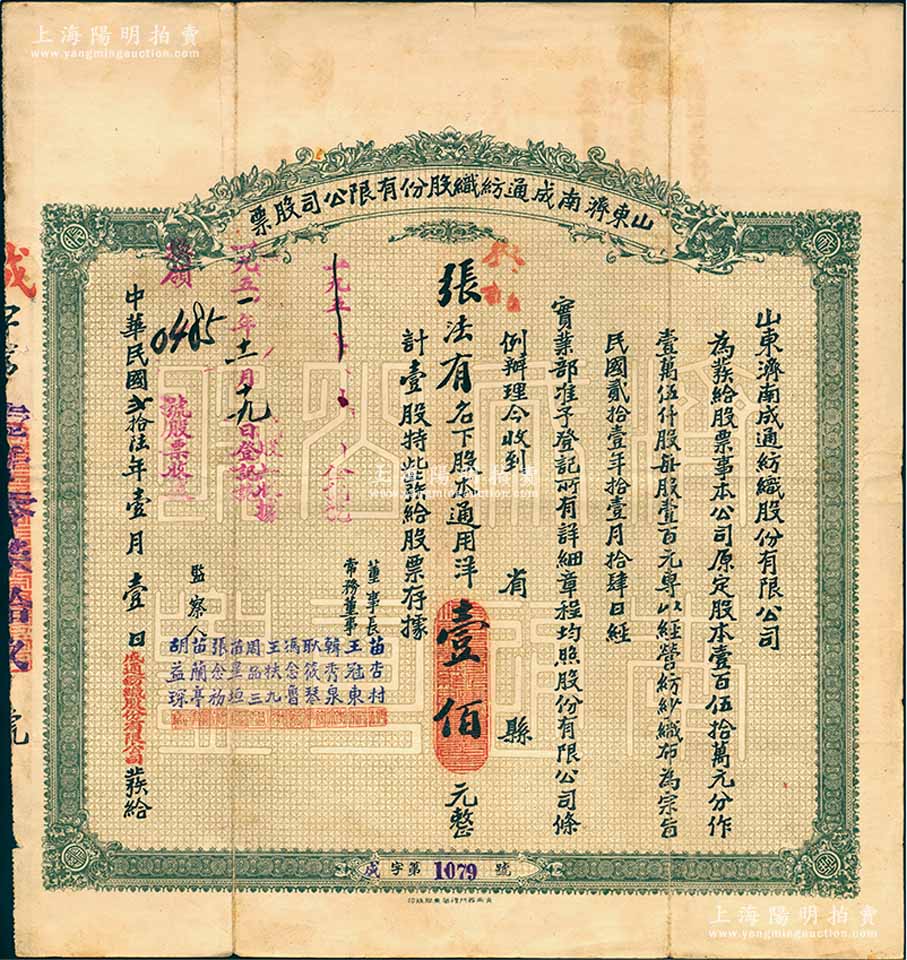 上海陽明拍賣
www.yangmingauction.com
山東濟南成通紡織股份有限公司股票
山東濟南成通紡織股份有限公司
為蔟給股票事本公司原定股本壹百伍拾萬元分作
壹萬伍仟股每股壹百元專以經營紡紗織布為宗旨
民國貳拾壹年拾壹月拾肆日經
實業部准予登記所有詳細章程均照股份有限公司條
例辦理今收到 省 縣
張法有名下股本通用洋壹佰元整
計壹股特此蔟給股票存據
董事長 苗杏村
常務董事 王冠東
韓秀泉
耿筱琴
馮念魯
王扶九
周品三
苗星垣
張念劬
監察人 苗蘭亭
胡益琛
一九五一年十一月九日登記
換領 0485 號股票
中華民國貳拾伍年壹月壹日 成通紡織股份有限公司 蔟給
成字第 1079 號
上海陽明拍賣
www.yangmingauction.com
上海陽明拍賣
www.yangmingauction.com